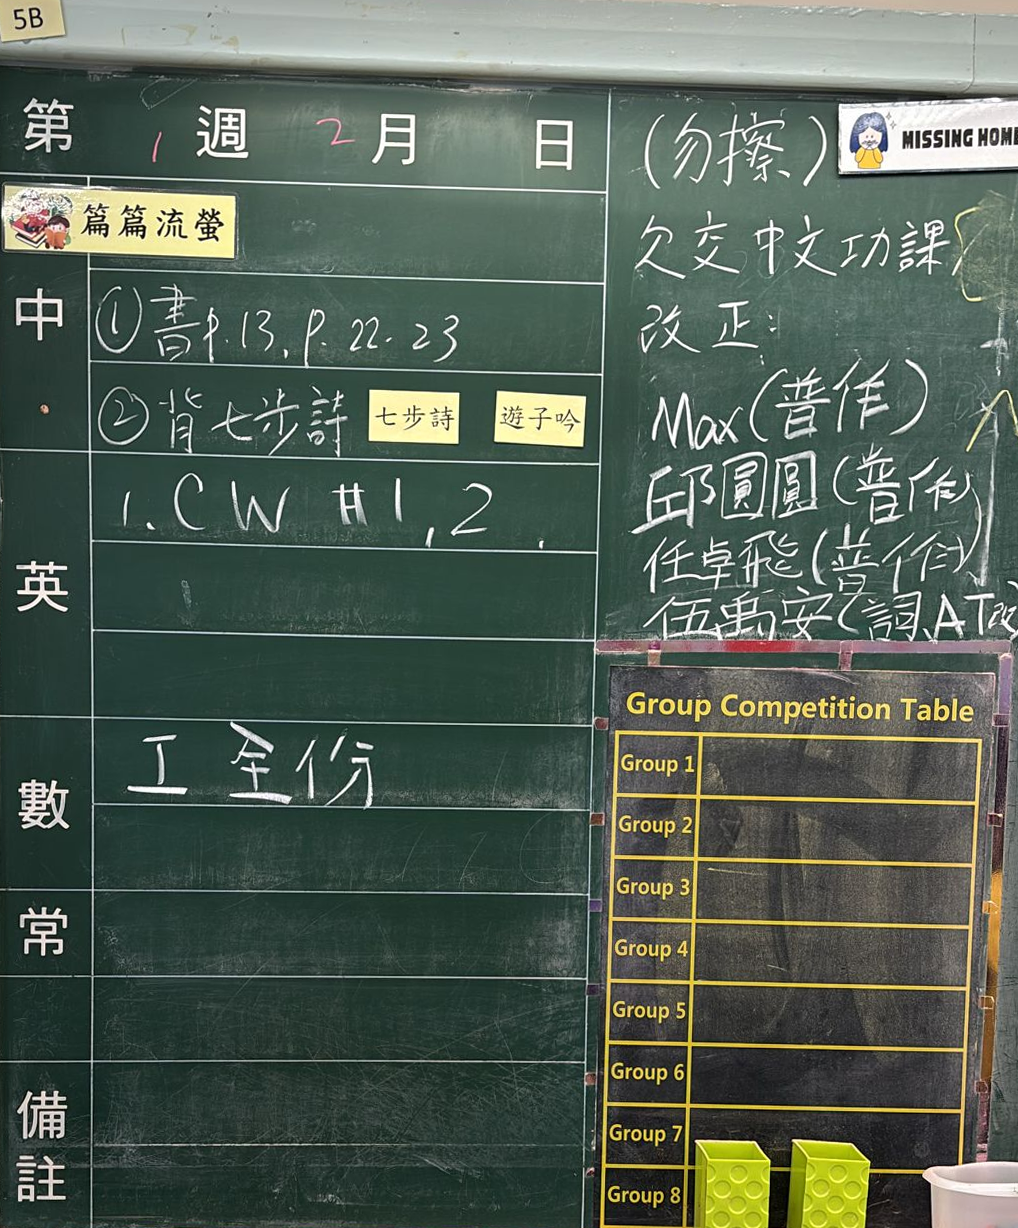 5B
第 1 週 2 月 日
篇篇流螢
中
①書p.13, p.22-23
②背七步詩 七步詩 遊子吟
英
1. CW #1,2,
數
工 全份
常
備註
(勿擦) MISSING HOME
欠交中文功課
改正:
Max(普作)
邱圓圓(普作)
任卓飛(普作)
伍禹安(詞,AT改)
Group Competition Table
Group 1
Group 2
Group 3
Group 4
Group 5
Group 6
Group 7
Group 8